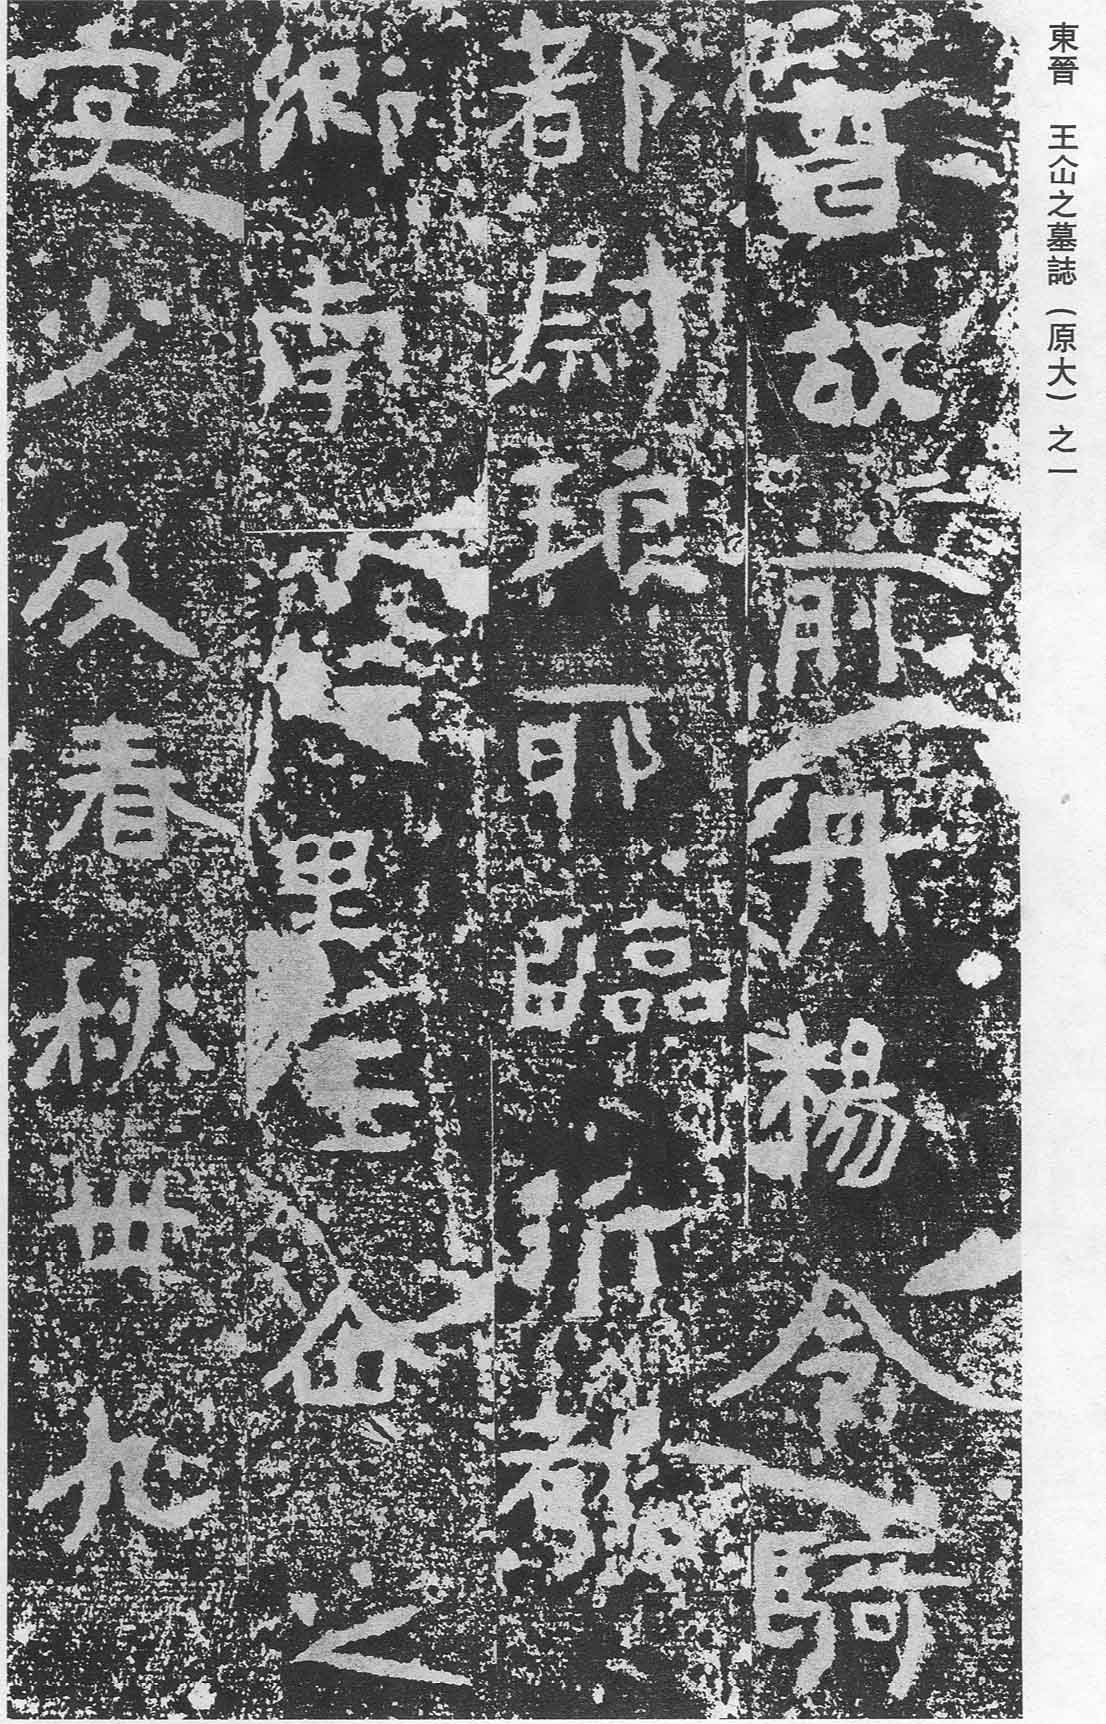 東晉 王仚之墓誌(原大)之一
晉故前丹楊令騎
都尉琅耶臨沂都
鄉南里王仚之
字少及春秋卅九